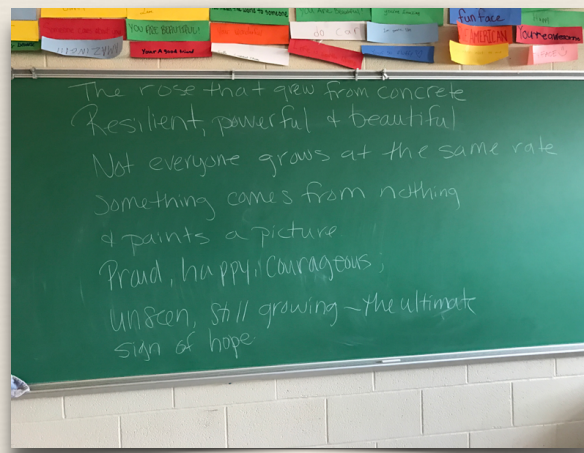 YOU ARE BEAUTIFUL!
Your A good friend
fun face
AMERICAN
The rose that grew from concrete
Resilient, powerful & beautiful
Not everyone grows at the same rate
Something comes from nothing
& paints a picture
Proud, happy, courageous;
unseen, still growing – the ultimate
sign of hope